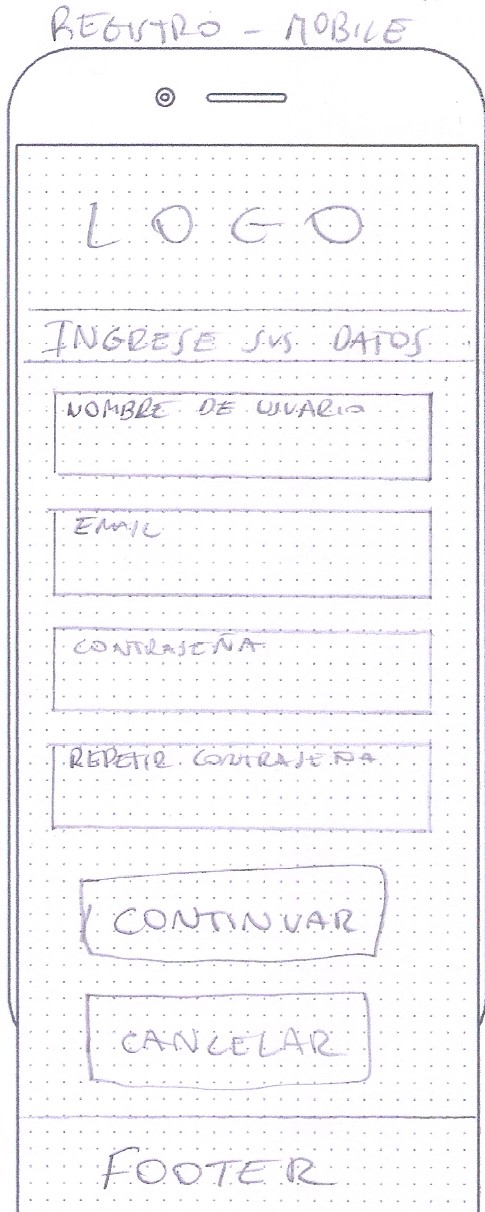 REGISTRO - MOBILE
LOGO
INGRESE SUS DATOS
NOMBRE DE USUARIO
EMAIL
CONTRASEÑA
REPETIR CONTRASEÑA
CONTINUAR
CANCELAR
FOOTER